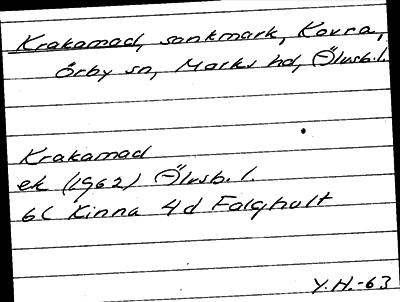 Krakamad, sankmark, Kovra,
Örby sn, Marks hd, Älvsb.l.
Krakamad
ek (1962) Älvsb.l.
6C Kinna 4d Falghult
Y.H.-63